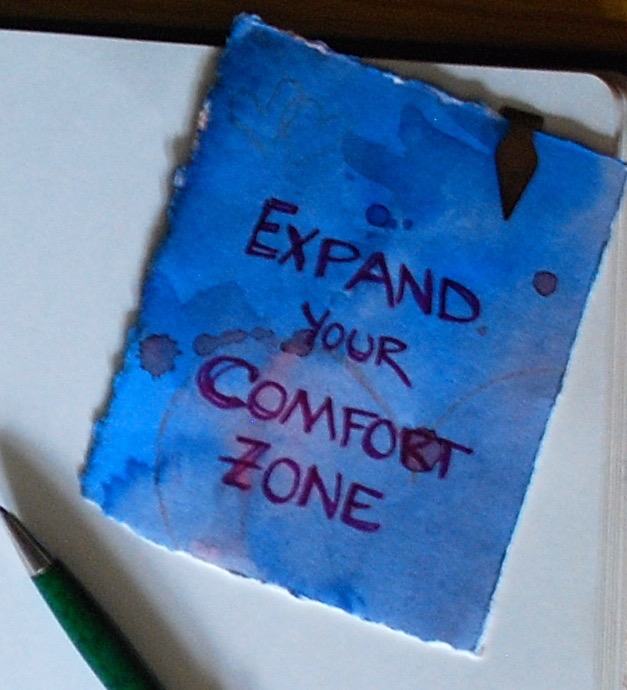 EXPAND
YOUR
COMFORT
ZONE